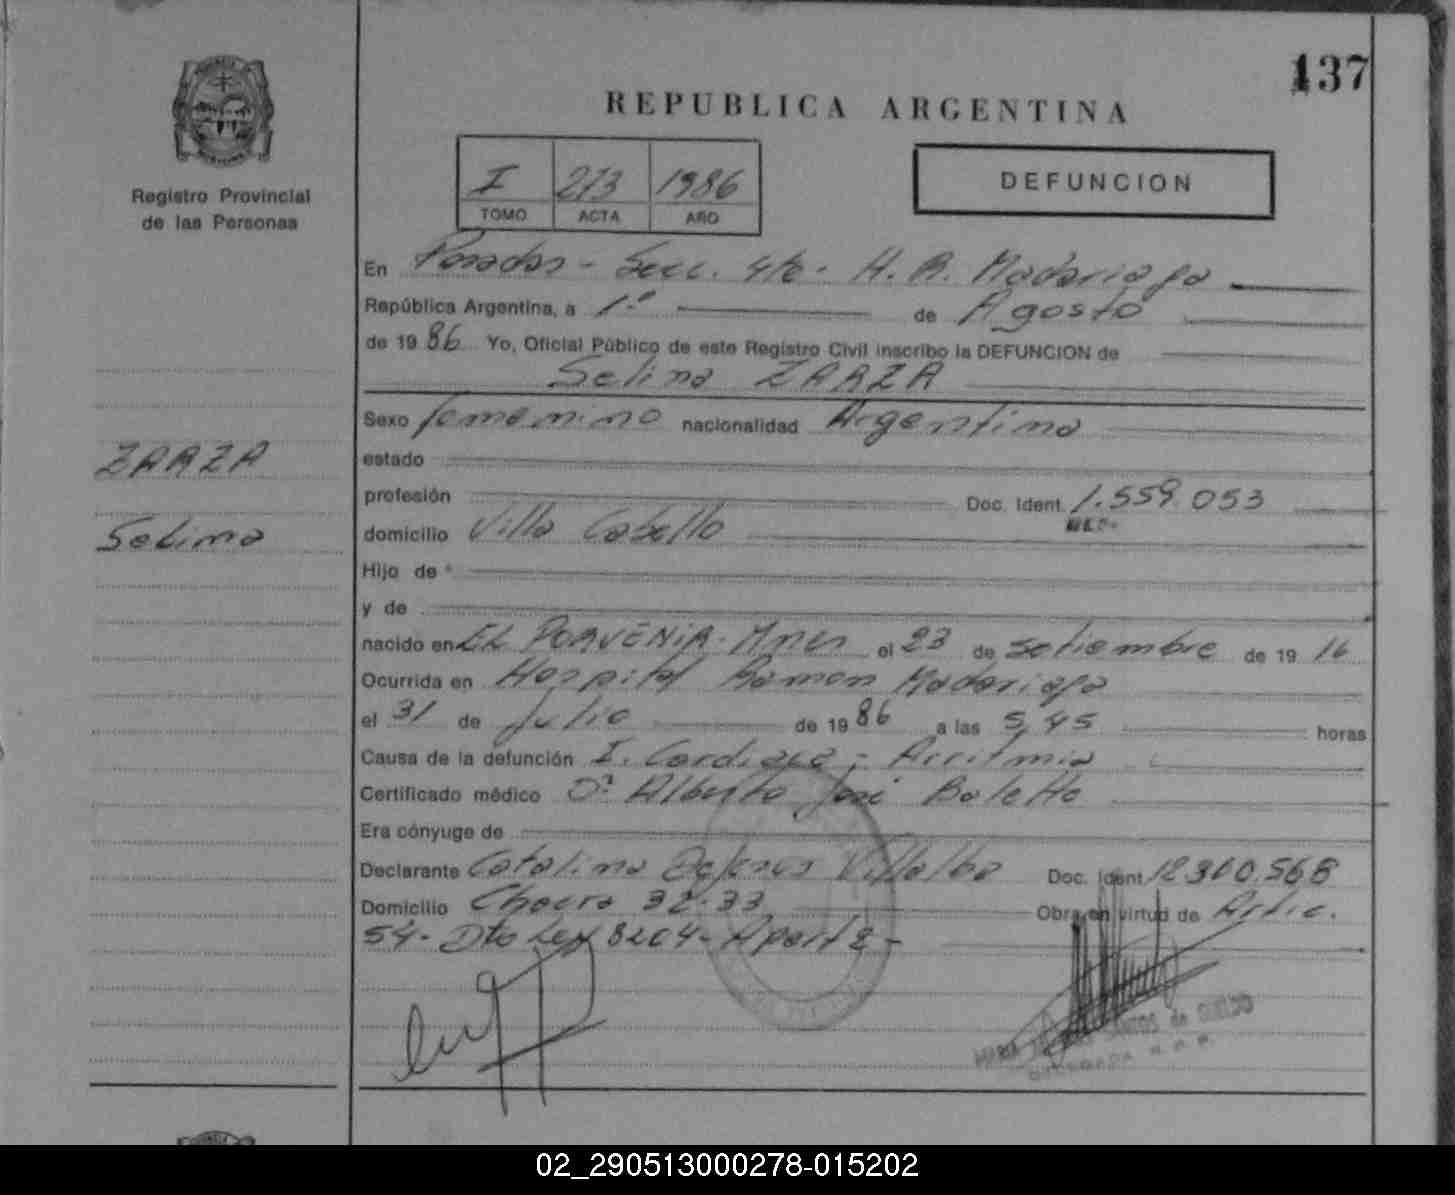 137
REPUBLICA ARGENTINA
Registro Provincial
de las Personas
I 213 1986
TOMO ACTA AÑO
DEFUNCION
En Posadas - Secc. 4ta. H. R. Madariaga
República Argentina, a 1.º de Agosto
de 1986 Yo, Oficial Público de este Registro Civil inscribo la DEFUNCION de
Selina ZARZA
Sexo femenino nacionalidad Argentina
ZARZA
estado
profesión Doc. Ident. 1.559.053
Selima
domicilio Villa Cabello
Hijo de
y de
nacido en EL PORVENIR - Mnes el 23 de setiembre de 1916
Ocurrida en Hospital Ramon Madariaga
el 31 de Julio de 1986 a las 5,45 horas
Causa de la defunción I. Cardiaca - Arritmia
Certificado médico Dr Alberto José Boletto
Era cónyuge de
Declarante Catalina Villalba Doc. Ident 12.360.568
Domicilio Chacra 32-33 Obra en virtud de Artic.
54 - Dto Ley 8204 - Apart 2 -
MARIA SANTOS de SUELDO
02_290513000278-015202